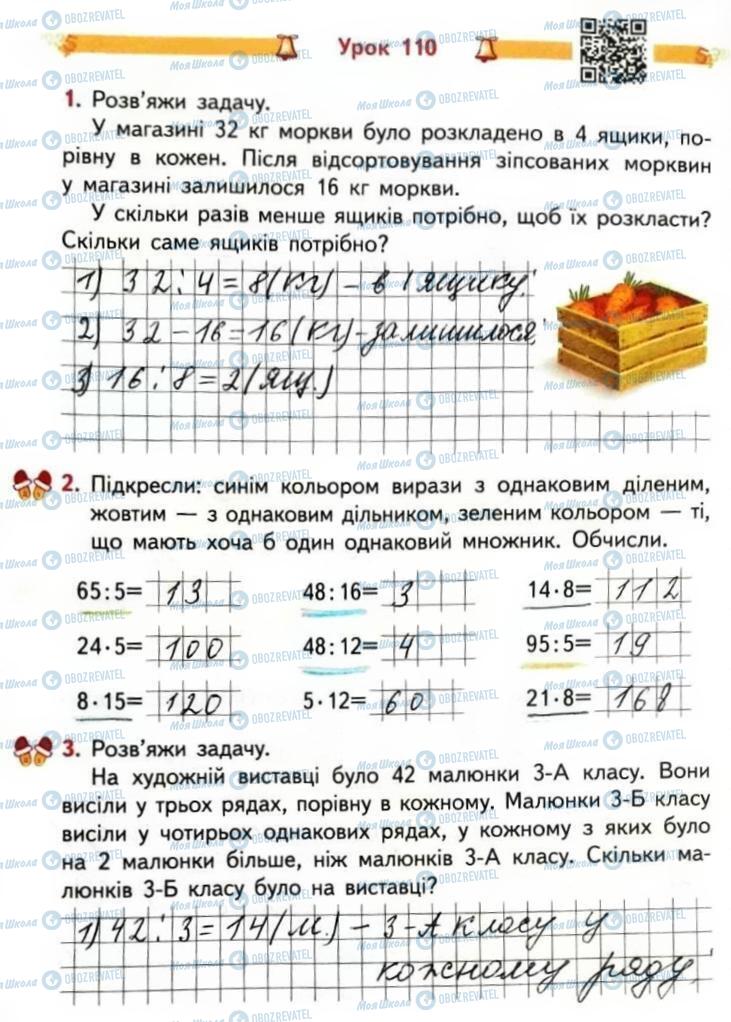 Урок 110
1. Розв'яжи задачу.
У магазині 32 кг моркви було розкладено в 4 ящики, по-
рівну в кожен. Після відсортовування зіпсованих морквин
у магазині залишилося 16 кг моркви.
У скільки разів менше ящиків потрібно, щоб їх розкласти?
Скільки саме ящиків потрібно?
1) 32 : 4 = 8 (кг) – в 1 ящику.
2) 32 – 16 = 16 (кг) - залишилося.
3) 16 : 8 = 2 (ящ.)
2. Підкресли: синім кольором вирази з однаковим діленим,
жовтим — з однаковим дільником, зеленим кольором — ті,
що мають хоча б один однаковий множник. Обчисли.
65 : 5 = 13 48 : 16 = 3 14 · 8 = 112
24 · 5 = 100 48 : 12 = 4 95 : 5 = 19
8 · 15 = 120 5 · 12 = 60 21 · 8 = 168
3. Розв'яжи задачу.
На художній виставці було 42 малюнки 3-А класу. Вони
висіли у трьох рядах, порівну в кожному. Малюнки 3-Б класу
висіли у чотирьох однакових рядах, у кожному з яких було
на 2 малюнки більше, ніж малюнків 3-А класу. Скільки ма-
люнків 3-Б класу було на виставці?
1) 42 : 3 = 14 (м.) – 3-А класу у
кожному ряду.
МояШкола OBOZREVATEL